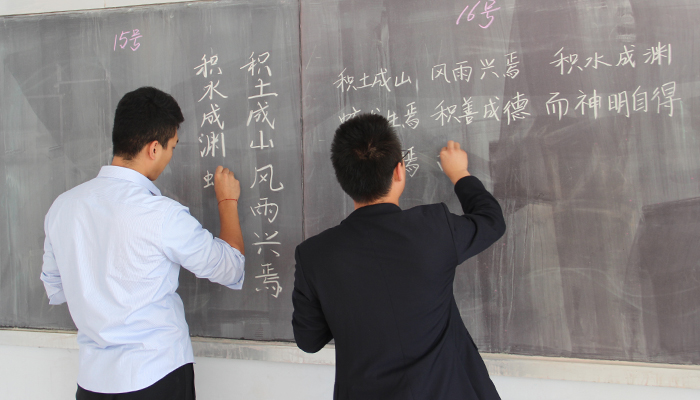 15号
积土成山风雨兴焉
积水成渊虫
16号
积土成山 风雨兴焉 积水成渊
生焉 积善成德 而神明自得
焉